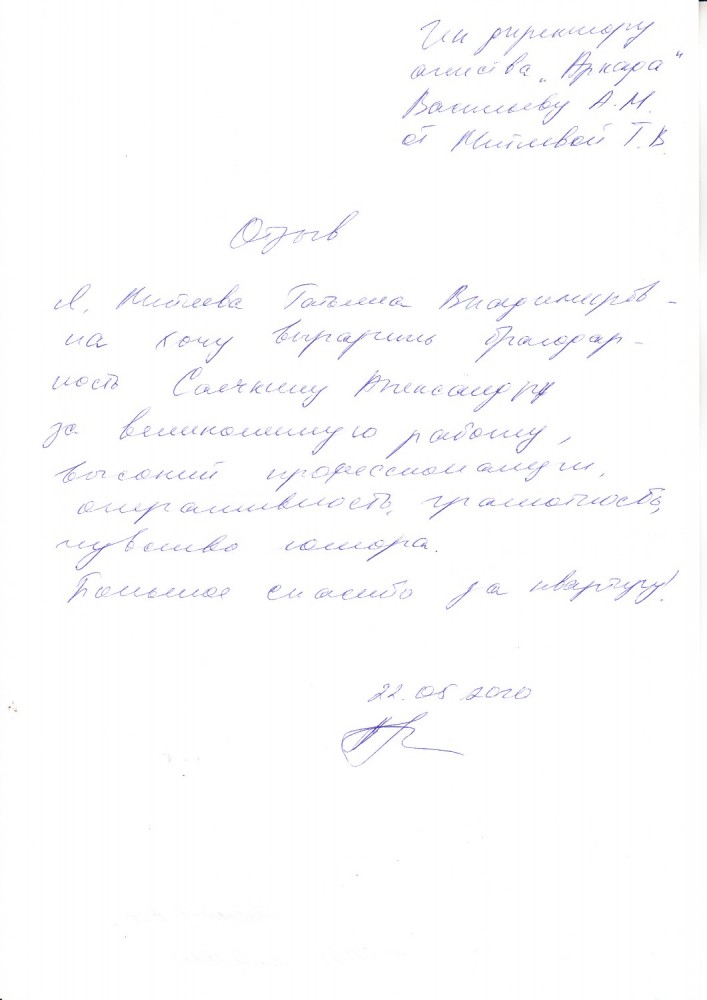 Ген директору
агенства „Аркада"
Васильеву А.М.
от Митяевой Т.В.
Отзыв
Я, Митяева Татьяна Владимиров-
на хочу выразить благодар-
ность Александру
за великолепную работу,
высокий профессионализм,
оперативность, грамотность,
чувство юмора.
Большое спасибо за квартиру!
22.05.2020